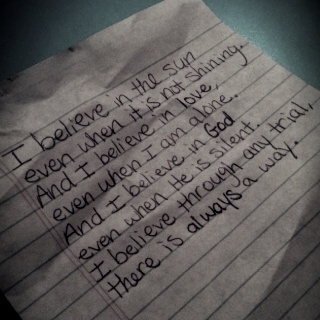 I believe in the sun
even when it is not shining.
And I believe in love,
even when I am alone.
And I believe in God
even when He is silent.
I believe through any trial,
there is always a way.